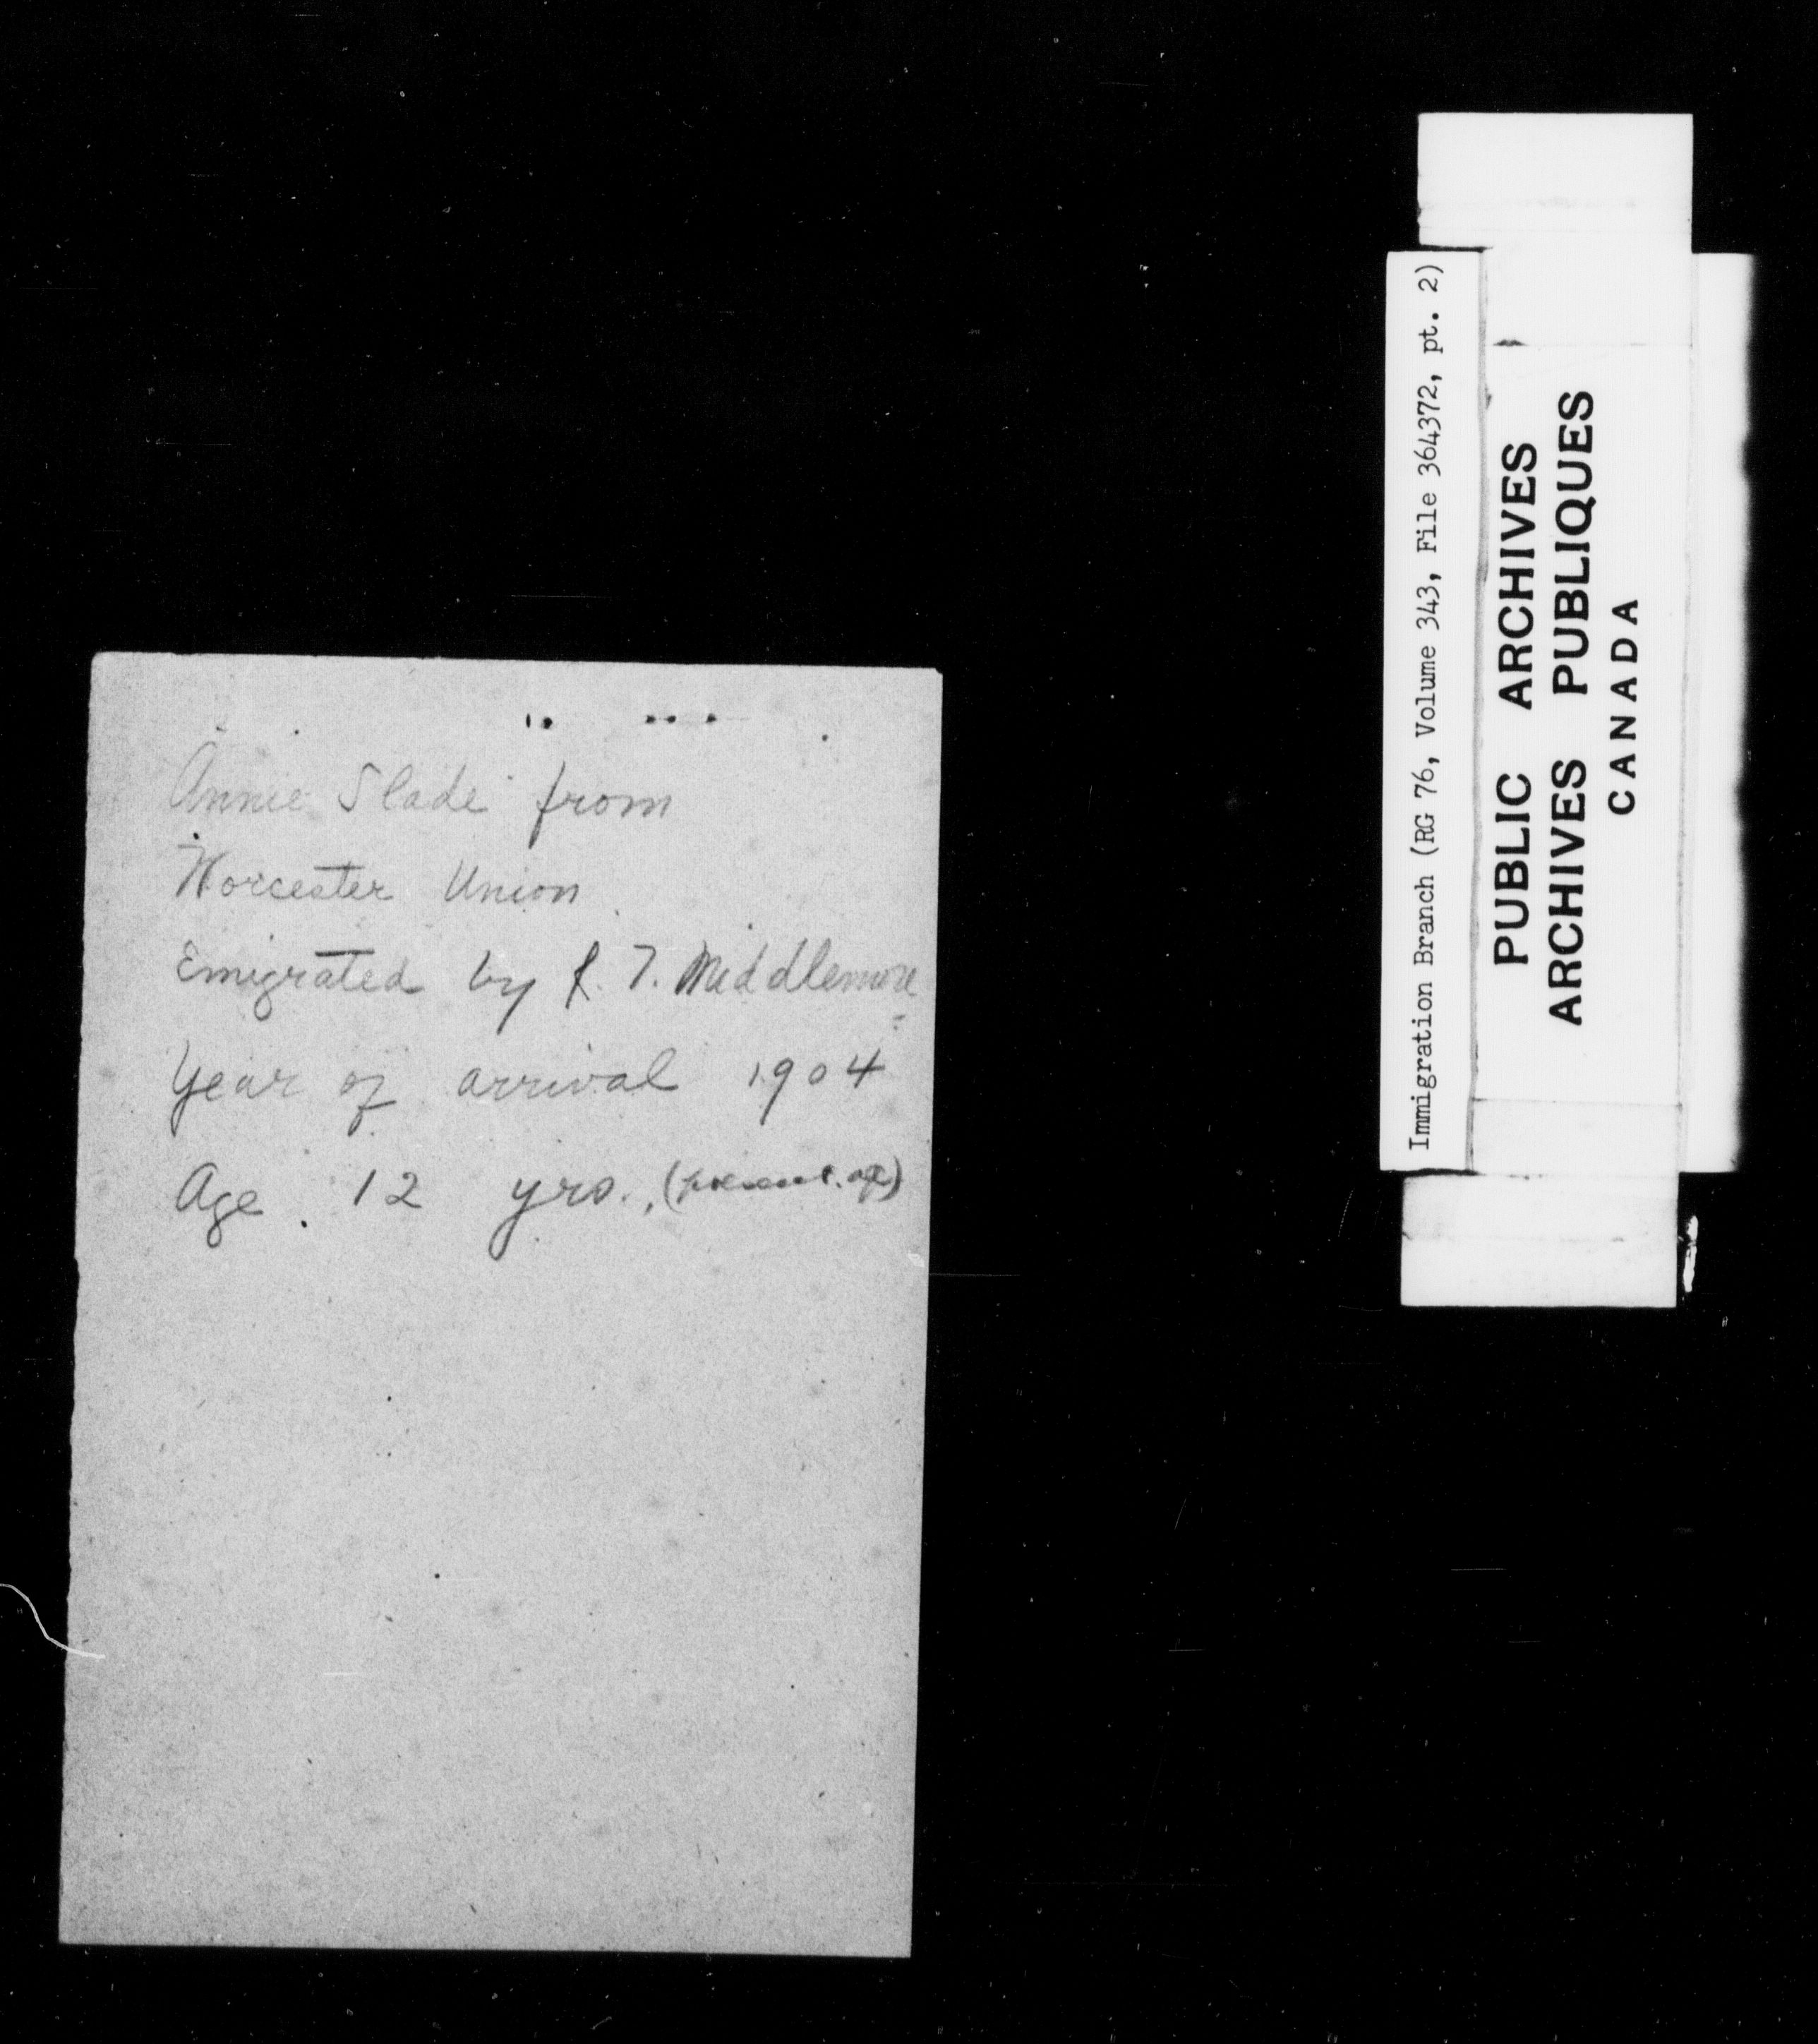 Annie Slade from
Worcester Union
Emigrated by J. T. Middlemore
Year of arrival 1904
Age. 12 yrs. (present age)
Immigration Branch (RG 76, Volume 343, File 364372, pt. 2)
PUBLIC ARCHIVES
ARCHIVES PUBLIQUES
CANADA